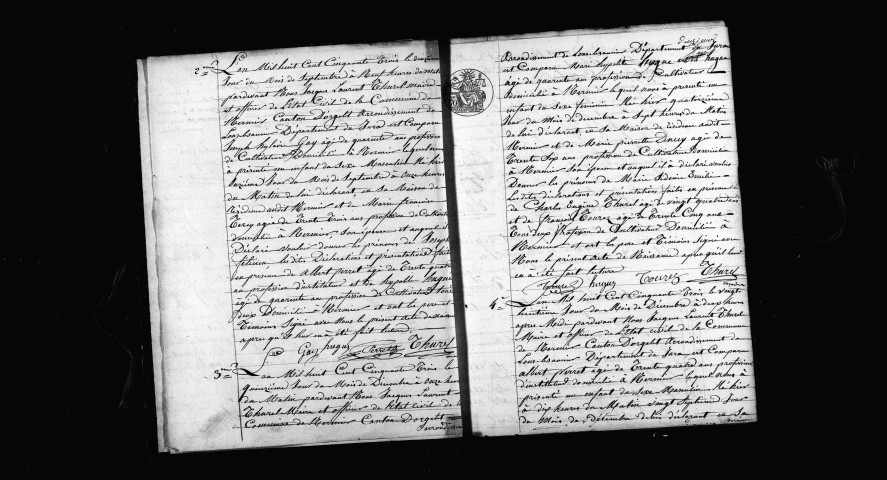 2me
L'an Mil huit Cent Cinquante Trois le douzième
Jour du Mois de Septembre à Neuf heures du matin
pardevant Nous Jacque Laurent Thurel Maire
et officier de l'Etat Civil de la Commune de
Mermier Canton D'orgelt Arrondissement de
Lons-lesaunier Département du Jura est Comparu
Joseph hylaire Gay agé de quarente ans profession
de Cultivateur Domicilié à Mermier lequel nous
à présenté un enfant du Sexe Masculin Né hier
onzième Jour du Mois de Septembre à onze heures
du Matin de lui déclarant, en Sa Maison de
Résidence audit Mermier et de Marie françoise
agée de Trente Trois ans profession de Cultivat
domiciliée à Mermier, Son épouse et auquel il a
Déclaré vouloir donner les prénoms de Joseph
félicien les dites Déclarations et présentations faites
en présence de Albert perret agé de Trente quatre
an profession d'instituteur et de hypolle huguet
agé de quarente an profession de Cultivateur tous
deux Domicilié à Mermier et ont les père et
Témoins Signé avec Nous le présent acte de naissance
après qu'il leur en a été fait lecture
Gay huguet perret Thurel
3me
L'an Mil huit Cent Cinquante Trois le
quinzième Jour du Mois de Décembre à onze heures
du Matin pardevant Nous Jacque Laurent
Thurel Maire et officier de l'état civil de la
Commune de Mermier Canton Dorgelt
Arrondissement
Arrondissement de Lons-lesaunier Département du Jura
est Comparu Marie hypolite huguet
agé de quarente an profession de Cultivateur
domicilié à Mermier lequel nous à présenté un
enfant du Sexe féminin Né hier quatorzième
Jour du Mois de décembre à Sept heures du Matin
de lui déclarant, en Sa Maison de résidence audit
Mermier et de Marie pierrette agée de
Trente Six ans profession de Cultivatrice Domiciliée
à Mermier Son épouse et auquel il a déclaré vouloir
Donner les prénoms de Marie Emilie
Lesdites déclarations et présentations faites en présence de
de Charles Eugène Thurel agé de vingt quatre ans
et de françois Tourez agé de Trente Cinq ans
Tous deux profession de Cultivateur Domicilié à
Mermier et ont les père et Témoins Signé avec
Nous le présent Acte de Naissance après qu'il leur
en a été fait lecture
huguet Tourez Thurel
4me
L'an Mil huit Cent Cinquante Trois, le vingt
huitième Jour du Mois de Décembre à deux heures
après Midi pardevant Nous Jacque Laurent Thurel
Maire et officier de l'état civil de la Commune
de Mermier Canton Dorgelt Arrondissement de
Lons-lesaunier Département du Jura est Comparu
albert perret agé de Trente quatre ans profession
d'instituteur domicilié à Mermier lequel nous à
présenté un enfant du Sexe Masculin Né hier
à dix heures du Matin vingt Septième Jour
du Mois de décembre de lui déclarant en Sa